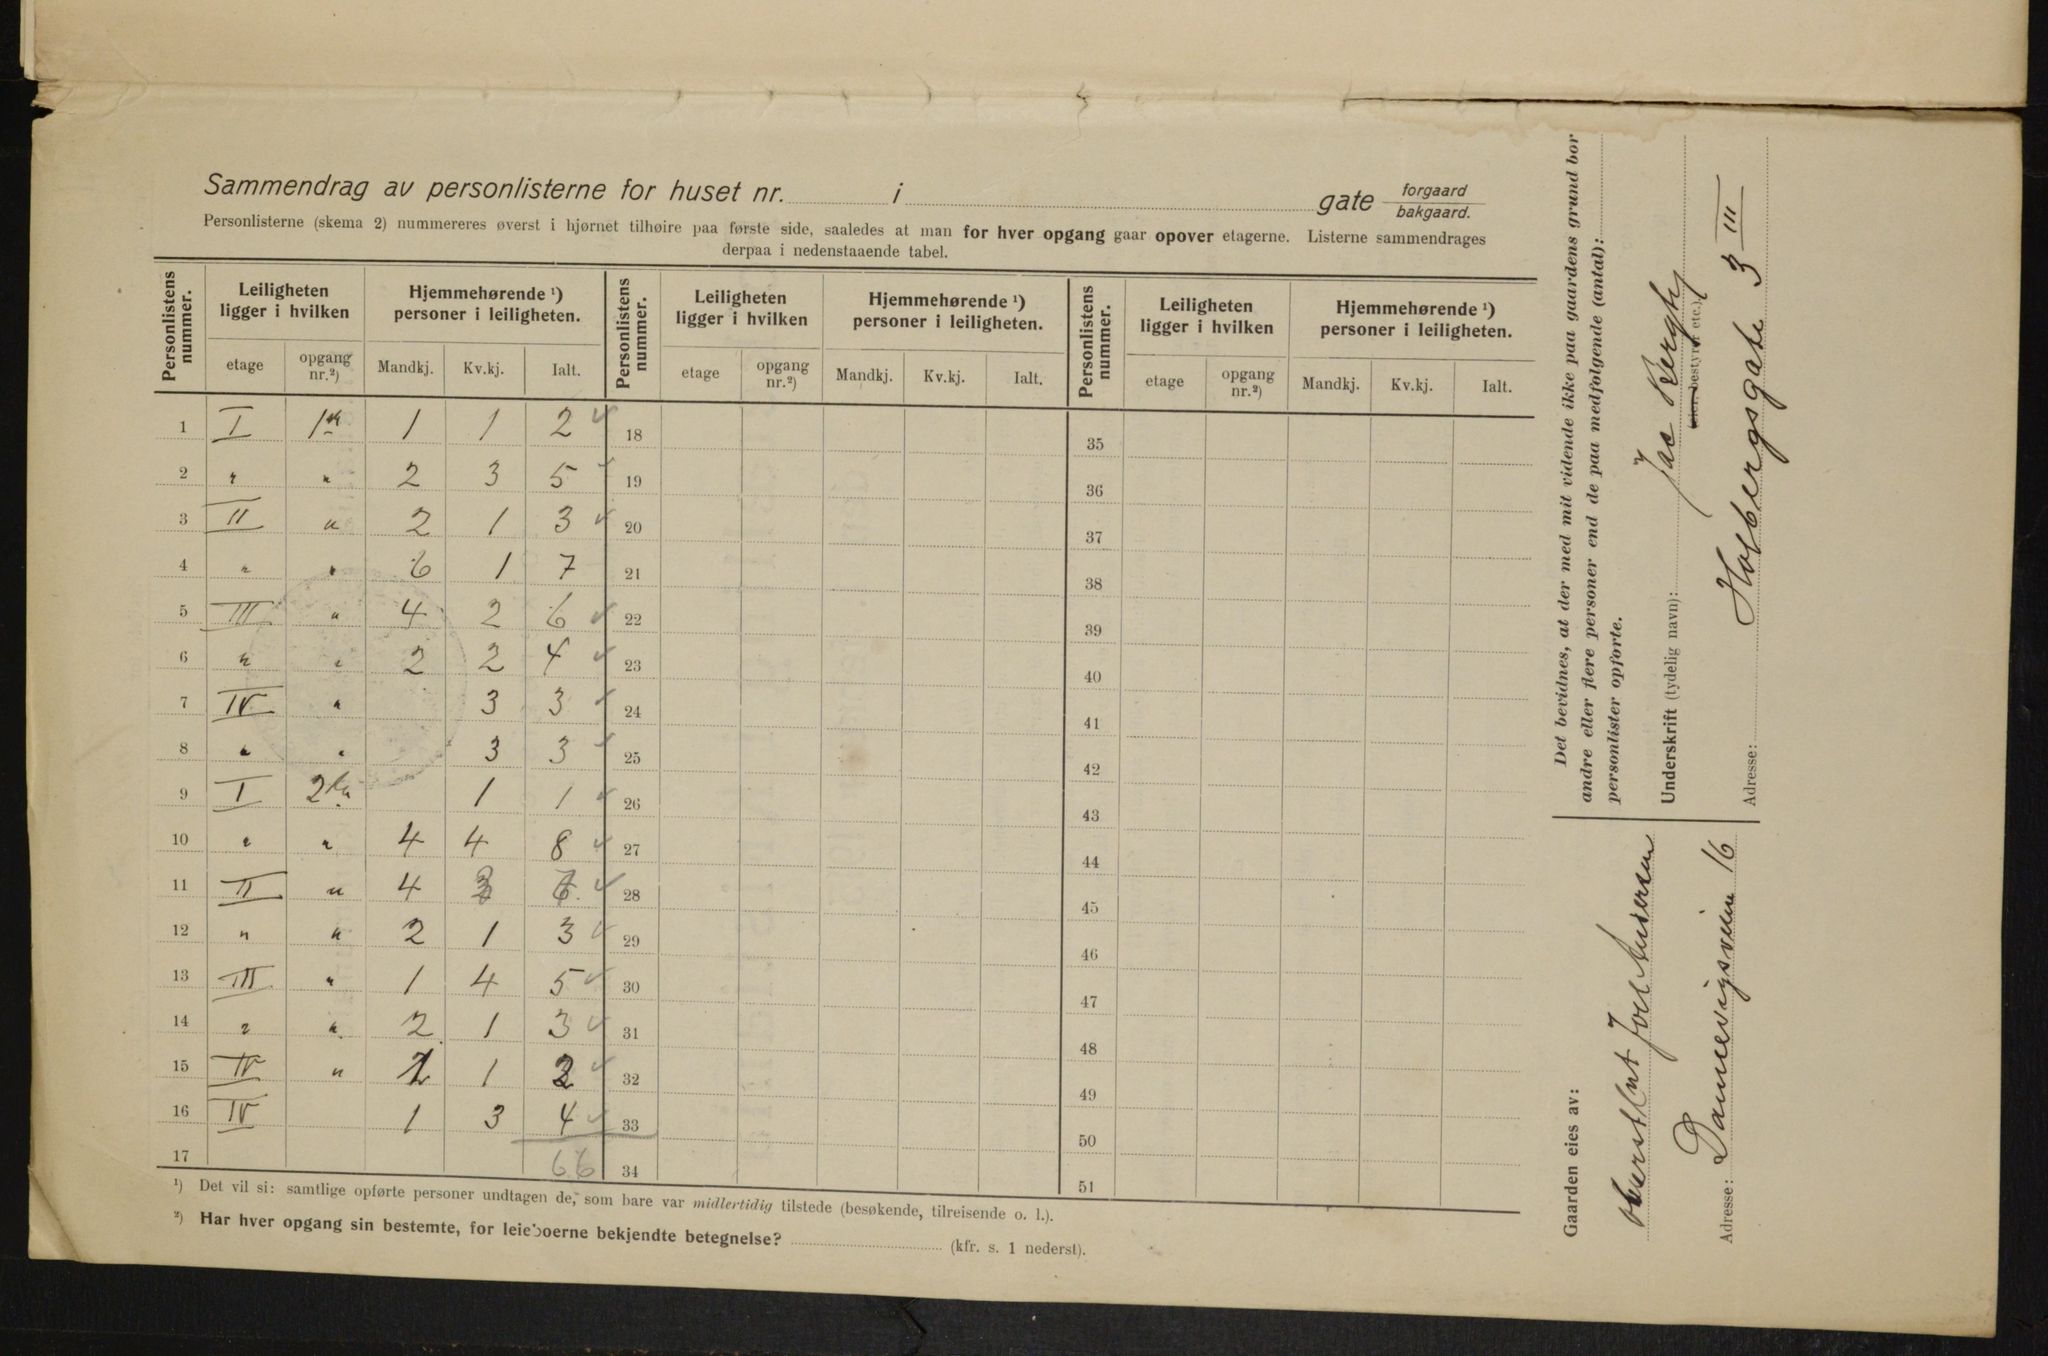 Sammendrag av personlisterne for huset nr. i gate forgaard bakgaard.
Personlisterne (skema 2) nummereres øverst i hjørnet tilhøire paa første side, saaledes at man for hver opgang gaar opover etagerne. Listerne sammendrages
derpaa i nedenstaaende tabel.
Personlistens nummer. Leiligheten ligger i hvilken Hjemmehørende ¹) personer i leiligheten. Personlistens nummer. Leiligheten ligger i hvilken Hjemmehørende ¹) personer i leiligheten. Personlistens nummer. Leiligheten ligger i hvilken Hjemmehørende ¹) personer i leiligheten.
etage opgang nr.²) Mandkj. Kv.kj. Ialt. etage opgang nr.²) Mandkj. Kv.kj. Ialt. etage opgang nr.²) Mandkj. Kv.kj. Ialt.
1 I 1 1 2 18 35
2 " " 2 3 5 19 36
3 II " 2 1 3 20 37
4 " " 6 1 7 21 38
5 III " 4 2 6 22 39
6 " " 2 2 4 23 40
7 IV " 3 3 24 41
8 " " 3 3 25 42
9 I 1 1 26 43
10 " " 4 4 8 27 44
11 II " 4 28 45
12 " " 2 1 3 29 46
13 III " 1 4 5 30 47
14 " " 2 1 3 31 48
15 IV " 1 1 2 32 49
16 IV 1 3 4 33 50
17 66 34 51
¹) Det vil si: samtlige opførte personer undtagen de, som bare var midlertidig tilstede (besøkende, tilreisende o. l.).
²) Har hver opgang sin bestemte, for leieboerne bekjendte betegnelse? (kfr. s. 1 nederst).
Det bevidnes, at der med mit vidende ikke paa gaardens grund bor
andre eller flere personer end de paa medfølgende (antal):
personlister opførte.
Underskrift (tydelig navn): Jac Bergh
(eier, bestyrer etc.).
Adresse: Holbergsgate 3 III
Gaarden eies av:
Joh Andersen
Adresse: Dannevigsveien 16